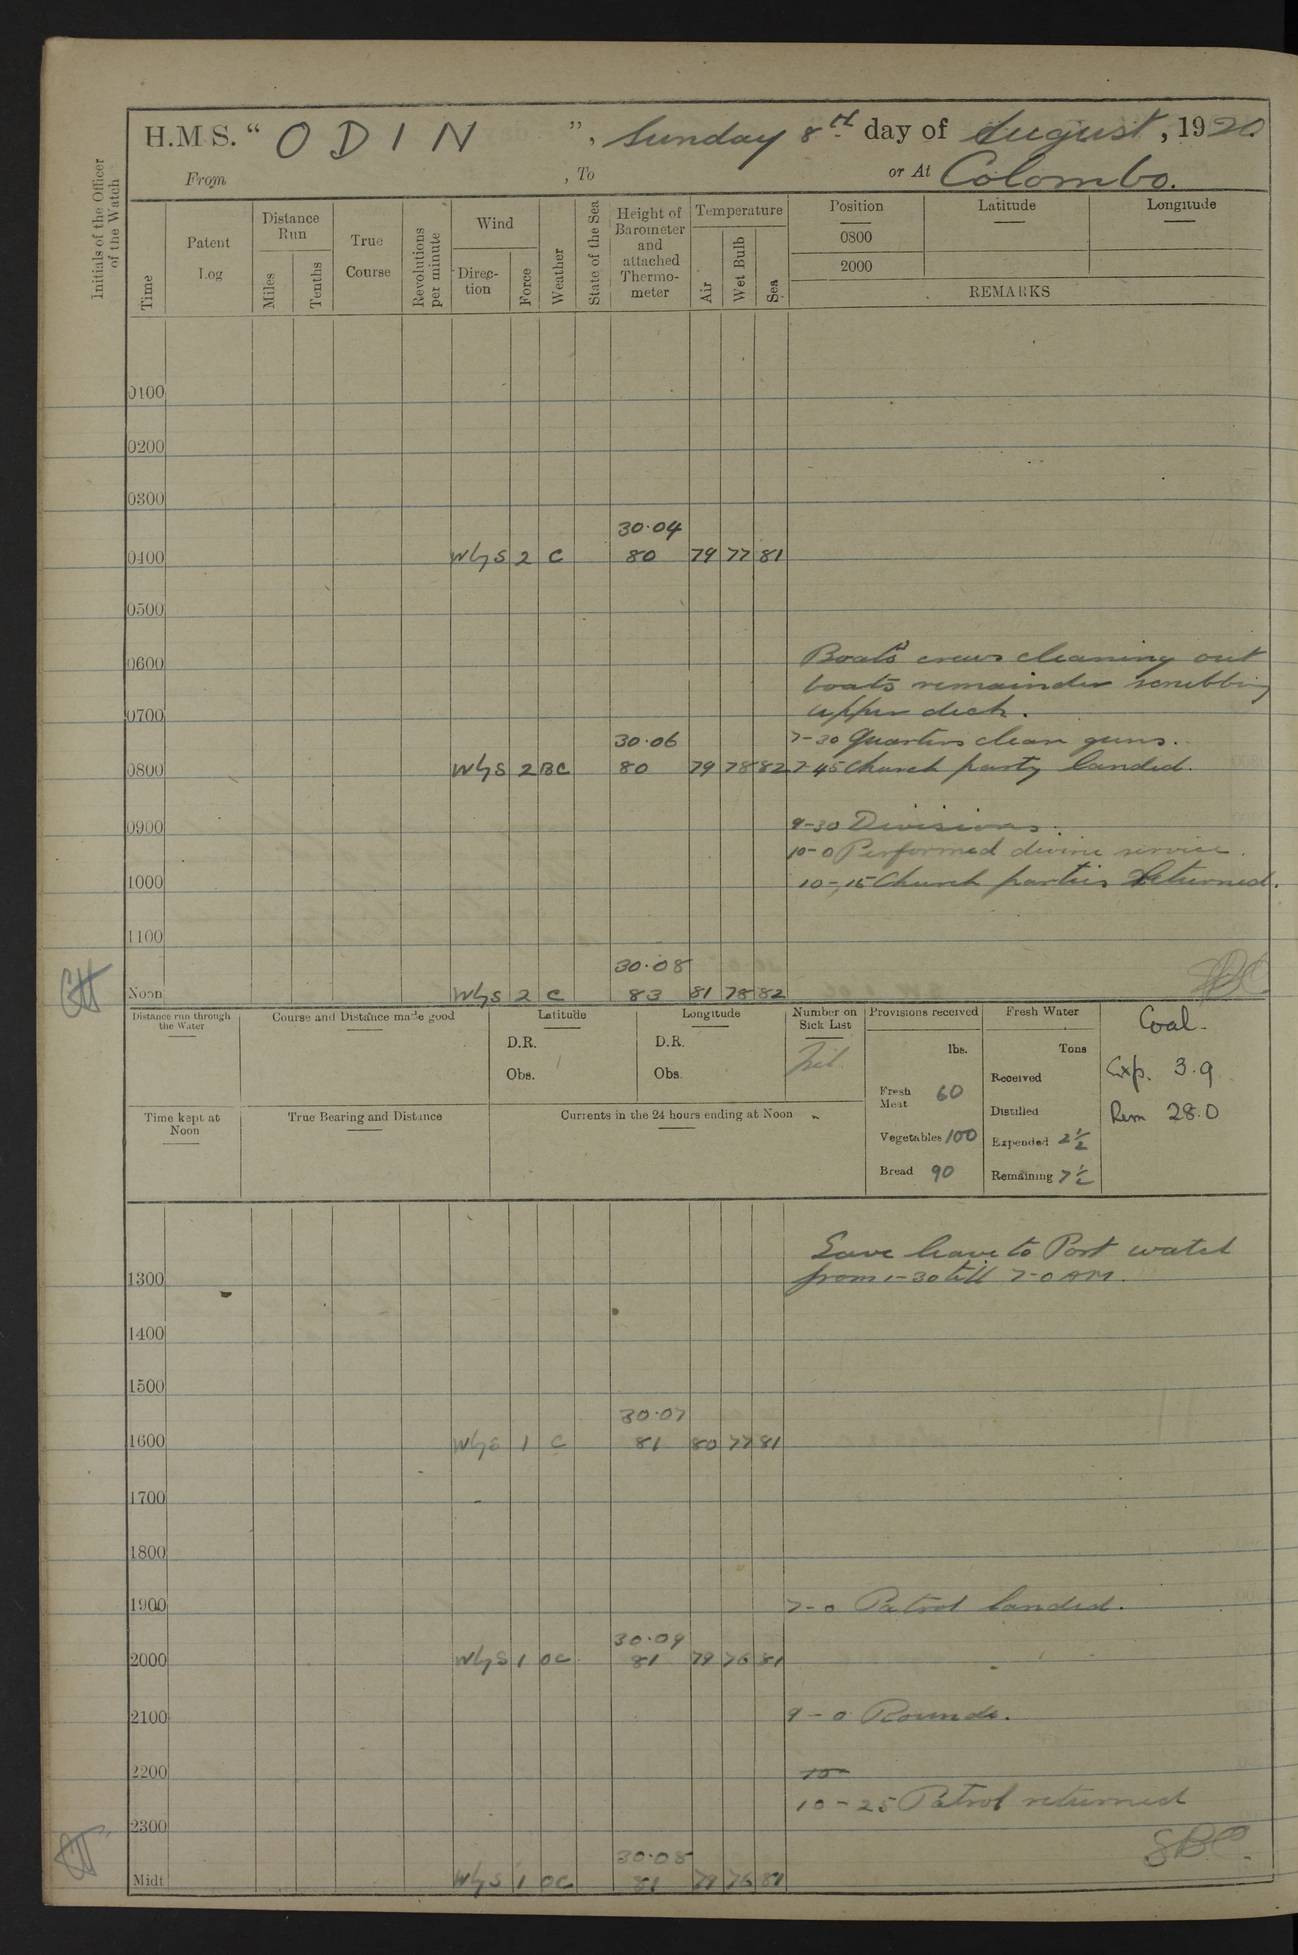 H.M.S. "ODIN", Sunday 8th day of August, 1920
From , To or At Colombo.
Initials of the Officer of the Watch
Time
Patent Log
Distance Run
Miles
Tenths
True Course
Revolutions per minute
Wind
Direc-tion
Force
Weather
State of the Sea
Height of Barometer and attached Thermo-meter
Temperature
Air
Wet Bulb
Sea
Position Latitude Longitude
0800
2000
REMARKS
0100
0200
0300
30.04
0400 WbyS 2 C 80 79 77 81
0500
0600 Boats crews cleaning out
boats remainder scrubbing
0700 upper deck.
30.06 7-30 Quarters clean guns.
0800 WbyS 2 BC 80 79 78 82 7-45 Church party landed.
0900 9-30 Divisions.
10-0 Performed divine service.
1000 10-15 Church parties Returned.
1100
30.08
Noon WbyS 2 C 83 81 78 82
Distance run through the Water
Course and Distance made good
Latitude
D.R.
Obs.
Longitude
D.R.
Obs.
Number on Sick List
Nil
Provisions received
lbs.
Fresh Meat 60
Vegetables 100
Bread 90
Fresh Water
Tons
Received
Distilled
Expended 2½
Remaining 7½
Coal.
Exp. 3.9
Rem 28.0
Time kept at Noon
True Bearing and Distance
Currents in the 24 hours ending at Noon
Gave leave to Port watch
1300 from 1-30 till 7-0 AM.
1400
1500
30.07
1600 WbyS 1 C 81 80 77 81
1700
1800
1900 7-0 Patrol landed.
30.09
2000 WbyS 1 OC 81 79 76 81
2100 9-0 Rounds.
2200 10-
10-25 Patrol returned
2300
SBC.
30.08
Midt WbyS 1 OC 81 79 76 81